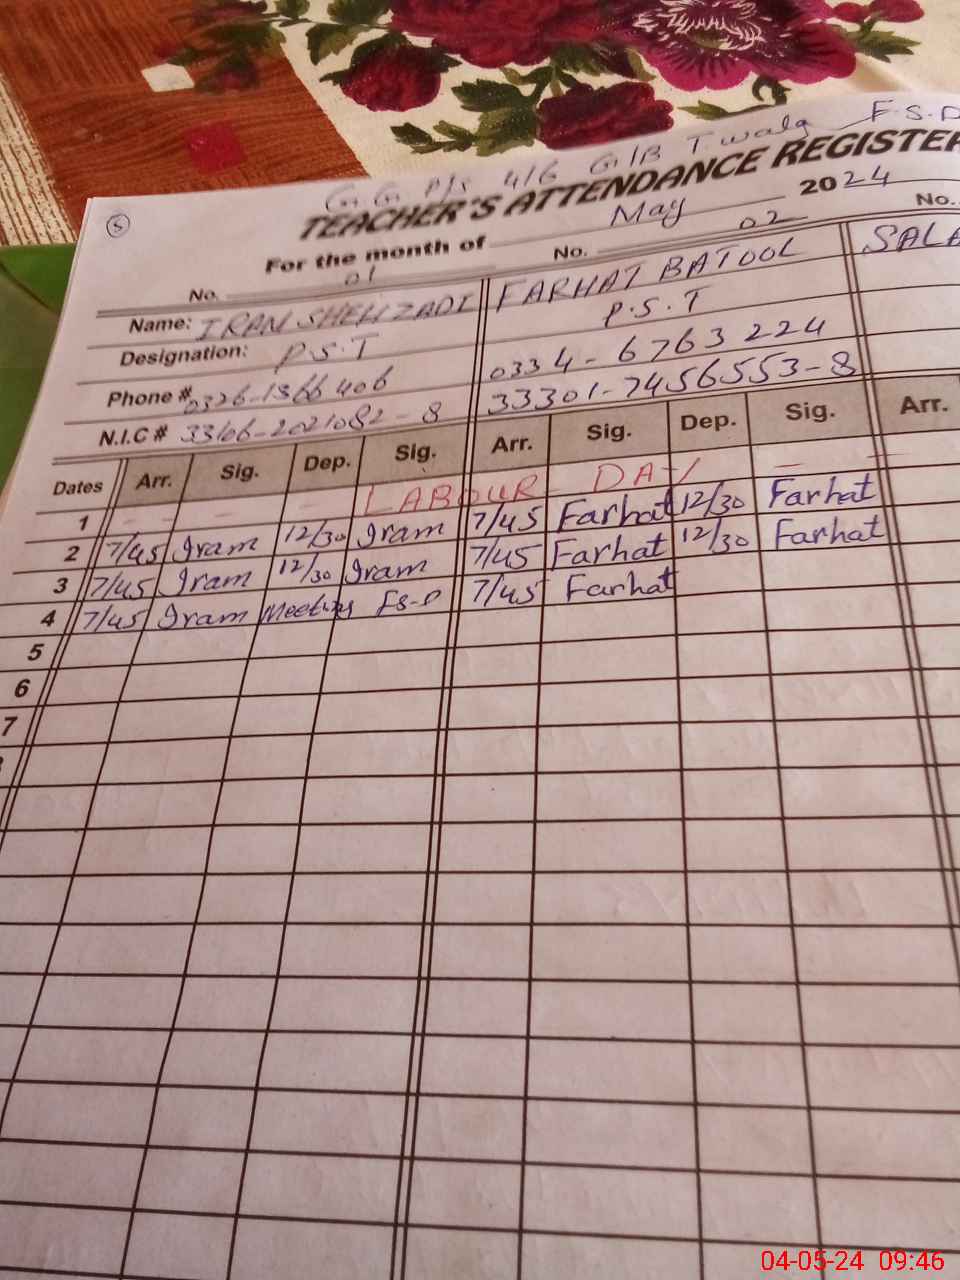 G.G. P/S 416 G/B Twala F.S.D
5 TEACHER'S ATTENDANCE REGISTER
For the month of May 2024
No. 01 No. 02 No.
Name: IRAM SHEHZADI FARHAT BATOOL SALA
Designation: P.S.T P.S.T
Phone # 0326-1366406 0334-6763224
N.I.C # 33106-2021082-8 33301-7456553-8
Dates Arr. Sig. Dep. Sig. Arr. Sig. Dep. Sig. Arr.
1 - - - LABOUR DAY - -
2 7/45 Iram 12/30 Iram 7/45 Farhat 12/30 Farhat
3 7/45 Iram 12/30 Iram 7/45 Farhat 12/30 Farhat
4 7/45 Iram Meeting FS-D 7/45 Farhat
5
6
7
04-05-24 09:46